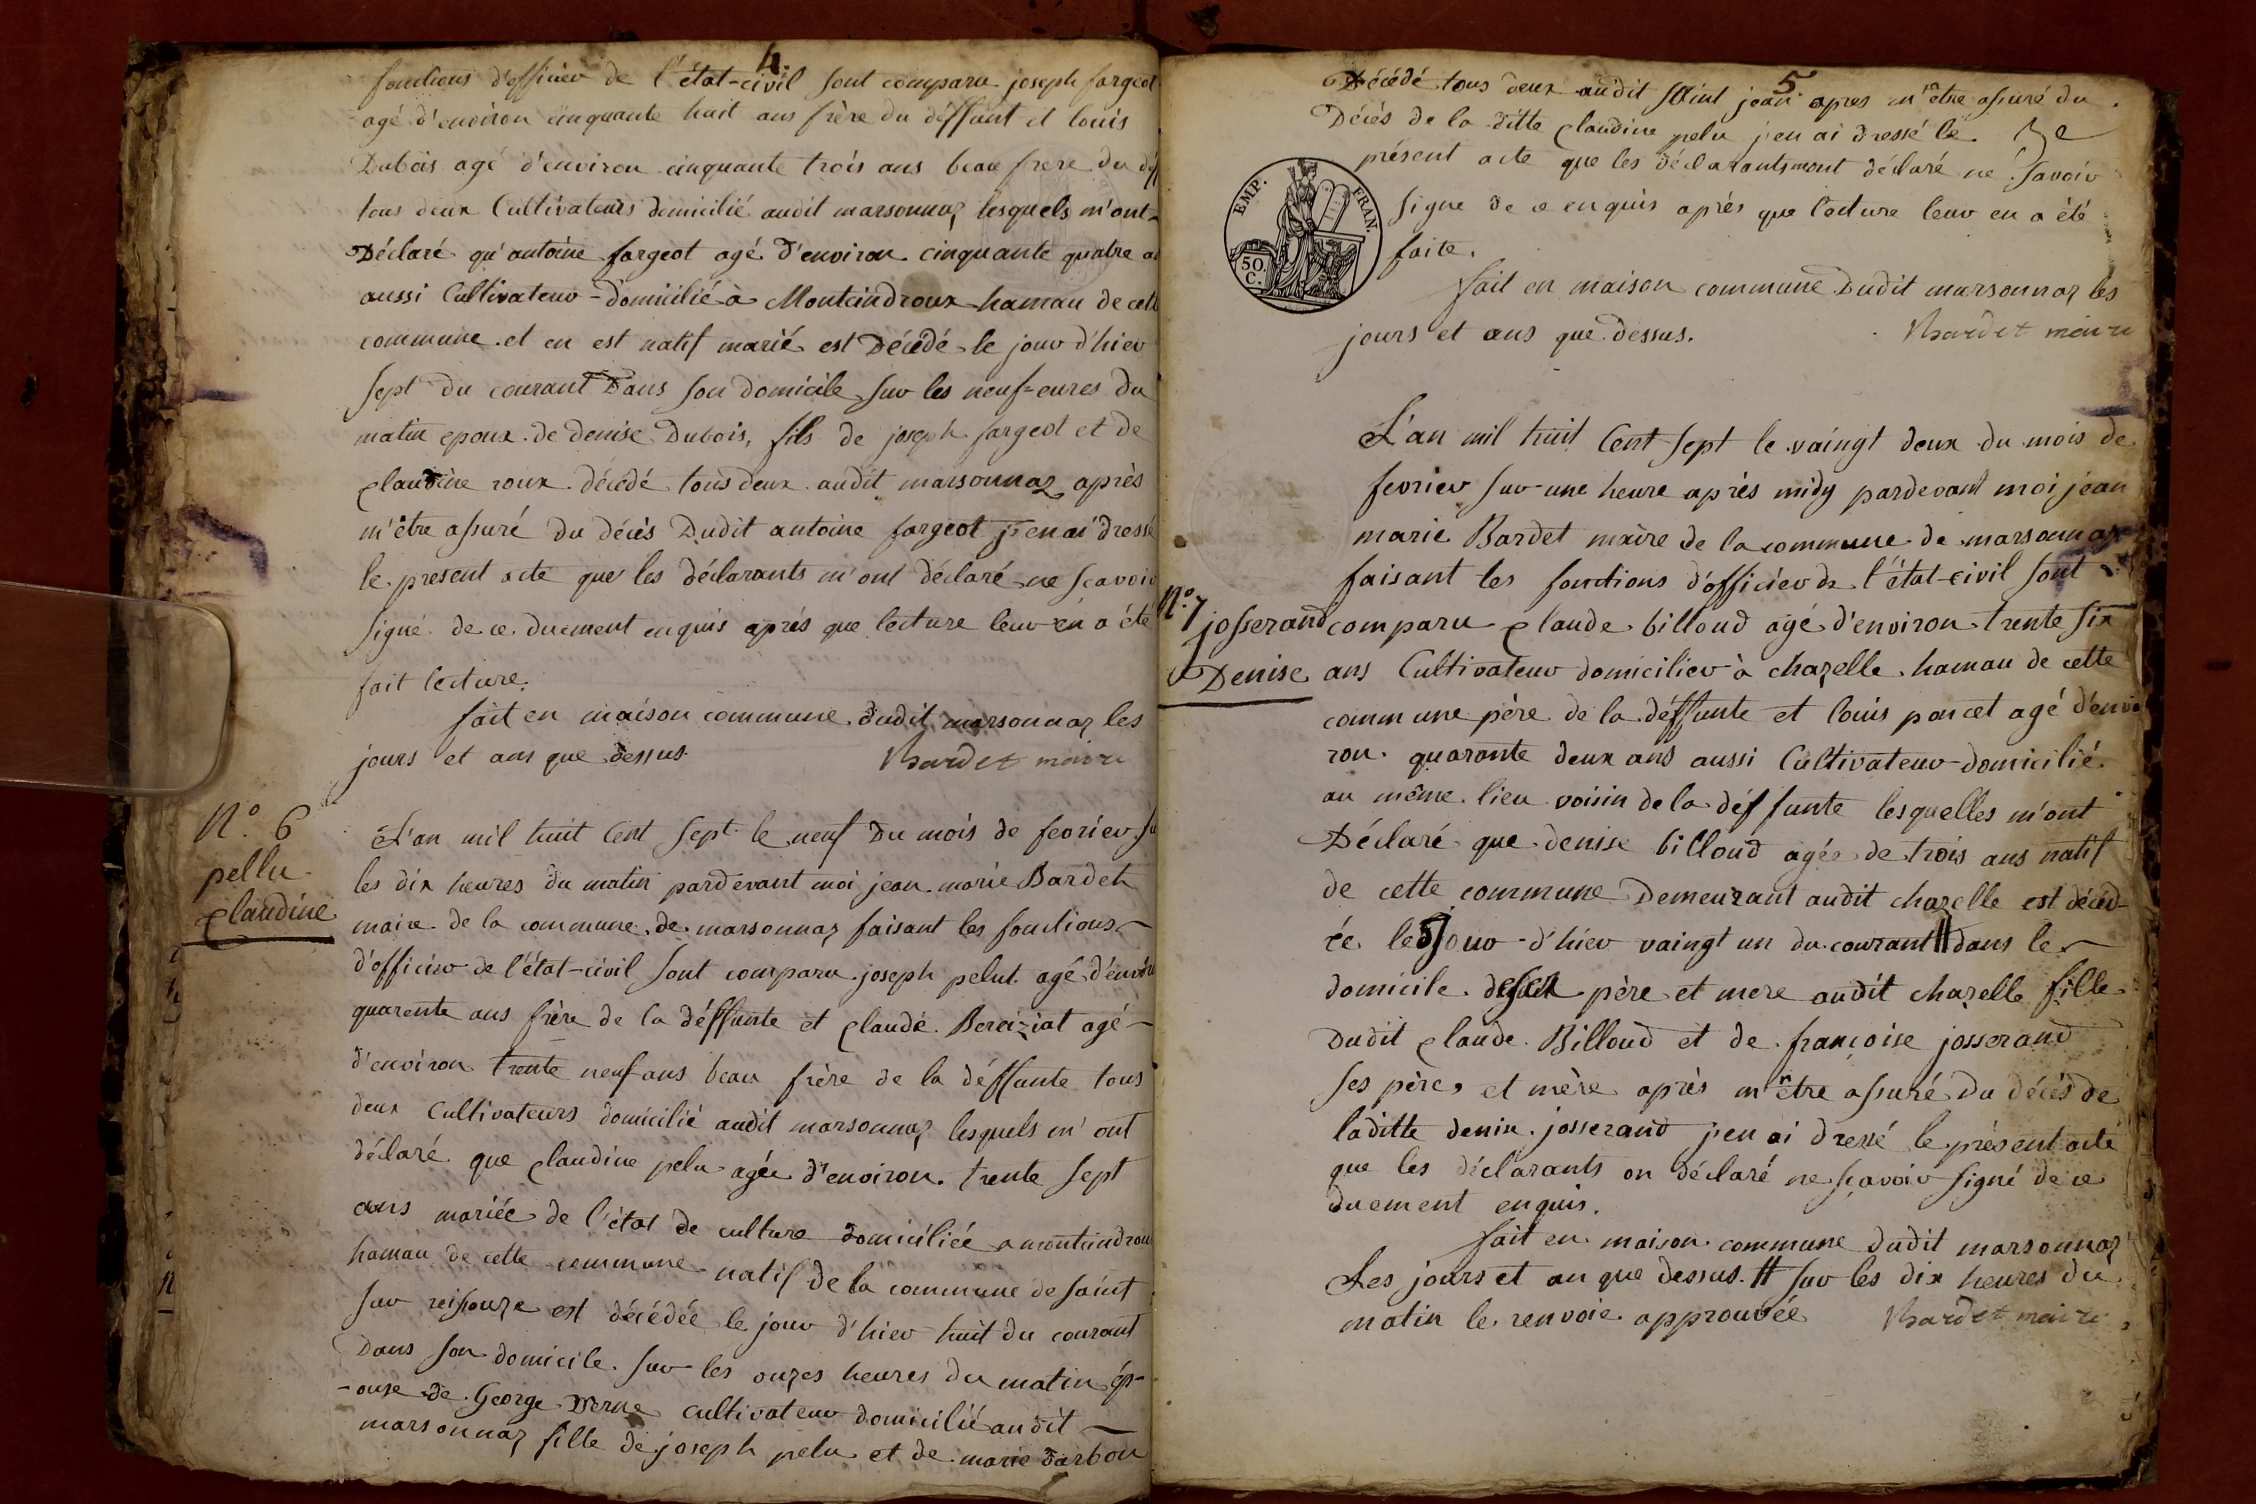 4.
fonctions d'officier de l'état-civil sont comparu joseph fargeot
agé d'environ cinquante huit ans frère du déffunt et louis
Dubois agé d'environ cinquante trois ans beau frere du déff
tous deux Cultivateurs domicilié audit marsonnaz lesquels m'ont
Déclaré qu'antoine fargeot agé d'environ cinquante quatre a
aussi Cultivateur domicilié à Montcindroux hamau de cett
commune et en est natif marié est Décédé le jour d'hier
sept du courant Dans son domicile sur les neuf-eures du
matin epoux de denise Dubois, fils de joseph fargeot et de
Claudine roux décédé tous deux audit marsonnaz après
m'être assuré du décès Dudit antoine fargeot j'en ai dressé
le present acte que les déclarants m'ont déclaré ne scavoir
signé de ce duement enquis après que lecture leur en a été
fait lecture.
fait en maison commune dudit marsonnaz les
jours et ans que dessus. Bardet maire
N.° 6
pellu
Claudine
L'an mil huit Cent Sept le neuf Du mois de fevrier su
les dix heures du matin pardevant moi jean marie Bardet
maire de la commune de marsonnaz faisant les fonctions
d'officier de l'état-civil sont comparu joseph pelut agé d'envir
quarente ans frère de la déffunte et Claude Bereiziat agé
d'environ trente neuf ans beau frère de la déffunte tous
deux Cultivateurs domicilié audit marsonnaz lesquels m'ont
déclaré que Claudine pelu agée d'environ trente sept
ans mariée de l'état de culture domiciliée a montcindrou
hamau de cette commune natif de la commune de saint
sur reissouze est décédée le jour d'hier huit du courant
Dans son domicile sur les onzes heures du matin ép-
-ouse de George Verne cultivateur domicilié audit
marsonnaz fille de joseph pelu et de marie darbon
5
Décédé tous deux audit saint jean apres m'être assuré du
Décés de la ditte Claudine pelu j'en ai dressé le
présent acte que les déclarants mont déclaré ne savoir
signe de ce enquis après que lecture leur en a été
faite.
EMP. FRAN.
50. C.
fait en maison commune Dudit marsonnaz les
jours et ans que dessus. Bardet maire
L'an mil huit Cent sept le vaingt deux du mois de
fevrier sur une heure après midy pardevant moi jean
marie Bardet maire de la commune de marsonnaz
faisant les fonctions d'officier de l'état-civil sont
N.° 7
josserand
Denise
comparu Claude billoud agé d'environ trente six
ans Cultivateur domicilier à chazelle hamau de cette
commune père de la déffunte et louis poncet agé d'envi
ron quarante deux ans aussi Cultivateur domicilié
au même lieu voisin de la déffunte lesquelles m'ont
Déclaré que denise billoud agée de trois ans natif
de cette commune Demeurant audit chazelle est décéd-
ée le jour d'hier vaingt un du courant # dans le
domicile de ses père et mere audit chazelle fille
Dudit Claude Billoud et de françoise josserand
ses père et mère après m'être assuré du décés de
laditte denise josserand j'en ai dressé le présent acte
que les déclarants on déclaré ne sçavoir signé de ce
duement enquis.
fait en maison commune dudit marsonnaz
Les jours et an que dessus. # sur les dix heures du
matin le renvoie approuvée Bardet maire